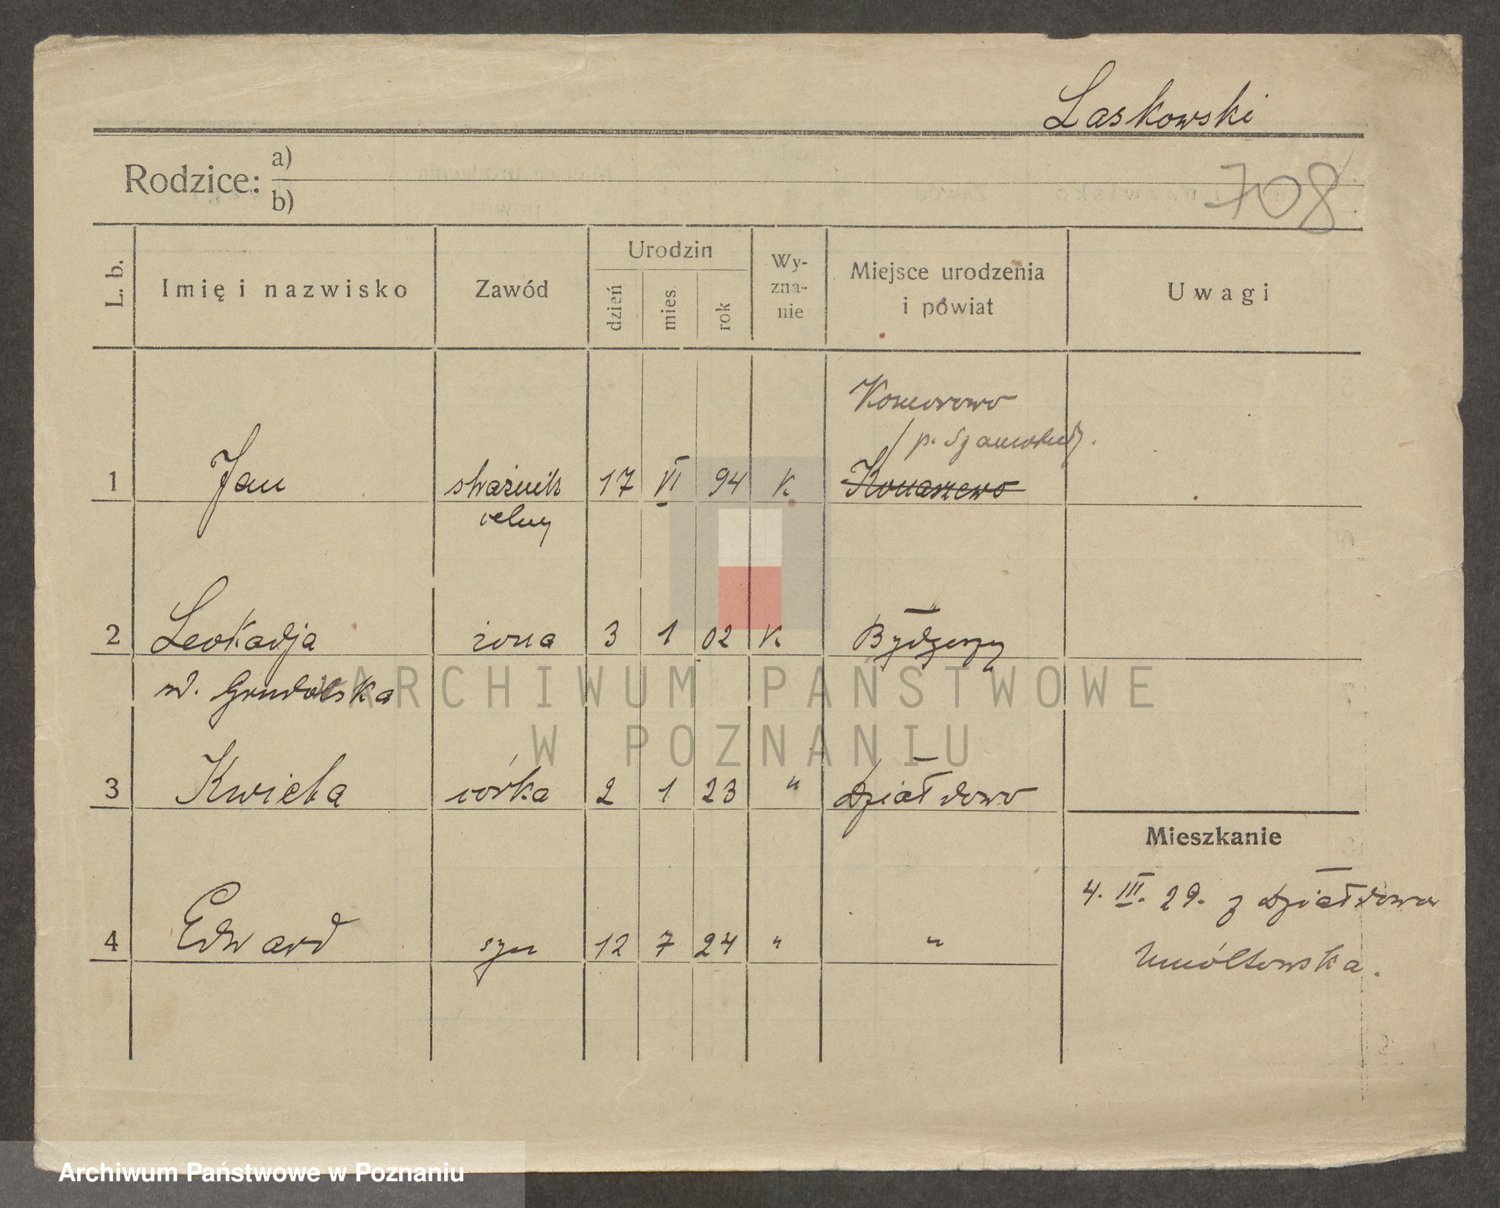 Laskowski
708
Rodzice: a)
b)
L. b. Imię i nazwisko Zawód Urodzin dzień mies. rok Wy-zna-nie Miejsce urodzenia i powiat Uwagi
Komorowo
p. Szamotuły.
1 Jan strażnik 17 VI 94 K Konarzewo
celny
2 Leokadja żona 3 1 02 K Bydgoszcz
ARCHIWUM PAŃSTWOWE
W POZNANIU
3 córka 2 1 23 " Działdowo
Mieszkanie
4. III. 29. z Działdowa
4 Edward syn 12 7 24 " "
Umółtowska.
Archiwum Państwowe w Poznaniu